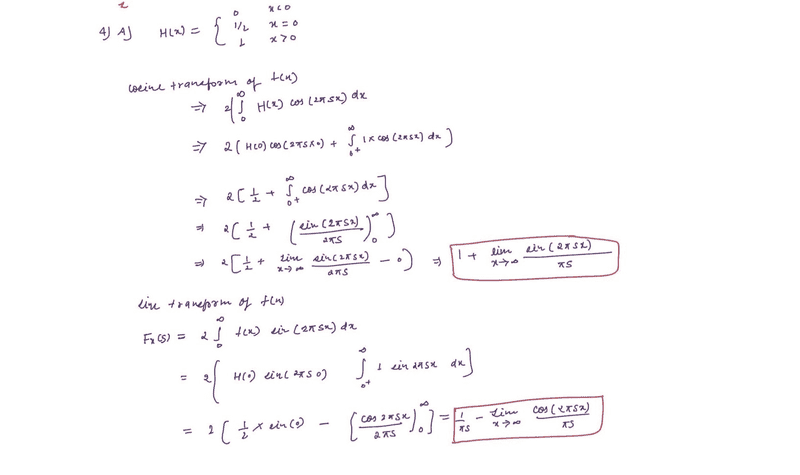 4) A) H(x) = { 0 x<0
1/2 x=0
1 x>0
cosine transform of f(x)
⇒ 2(∫₀^∞ H(x) cos(2πsx) dx
⇒ 2( H(0) cos(2πs×0) + ∫₀₊^∞ 1× cos(2πsx) dx )
⇒ 2[ 1/2 + ∫₀₊^∞ cos(2πsx) dx ]
⇒ 2( 1/2 + ( sin(2πsx) / 2πs )₀^∞ )
⇒ 2[ 1/2 + lim x→∞ sin(2πsx) / 2πs - 0 ) ⇒ 1 + lim x→∞ sin(2πsx) / πs
sine transform of f(x)
Fx(s) = 2 ∫₀^∞ f(x) sin(2πsx) dx
= 2[ H(0) sin(2πs0) ∫₀₊^∞ 1 sin 2πsx dx ]
= 2 [ 1/2 × sin(0) - [ cos 2πsx / 2πs )₀^∞ ] = 1/πs - lim x→∞ cos(2πsx) / πs